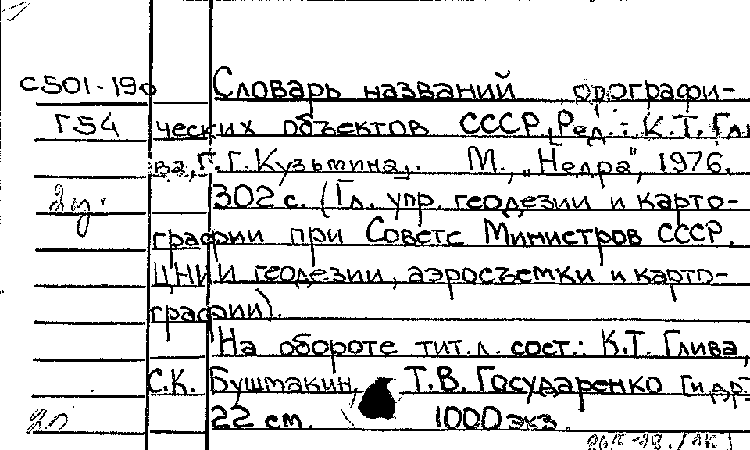 С501-190 Словарь названий орографи-
Г54 ческих объектов СССР. [Ред.: К.Т. Гли
ва, Г.Г. Кузьмина]. М., „Недра", 1976.
2у. 302 с. (Гл. упр. геодезии и карто-
графии при Совете Министров СССР.
ЦНИИ геодезии, аэросъемки и карто-
графии).
На обороте тит. л. сост.: К.Т. Глива,
С.К. Буштакин, Т.В. Государенко [и др.
2п 22 см. 1000 экз.